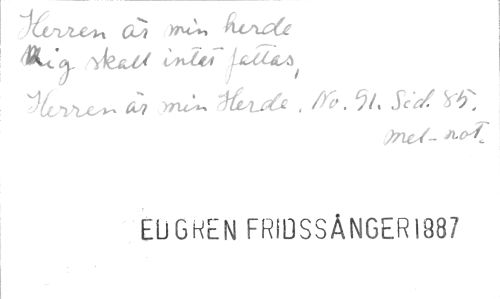 Herren är min herde
Mig skall intet fattas,
Herren är min Herde. No. 91. Sid. 85.
mel-not.
EDGREN FRIDSSÅNGER 1887